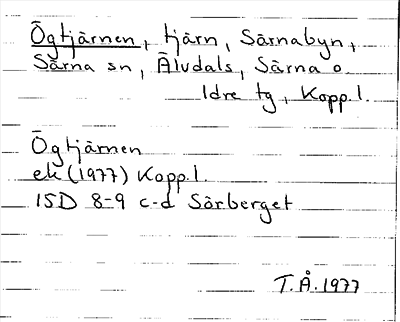 Ögtjärnen, tjärn, Särnabyn,
Särna sn, Älvdals, Särna o
Idre tg, Kopp.l.
Ögtjärnen
ek (1977) Kopp.l.
15D 8-9 c-d Särberget
T.Å. 1977